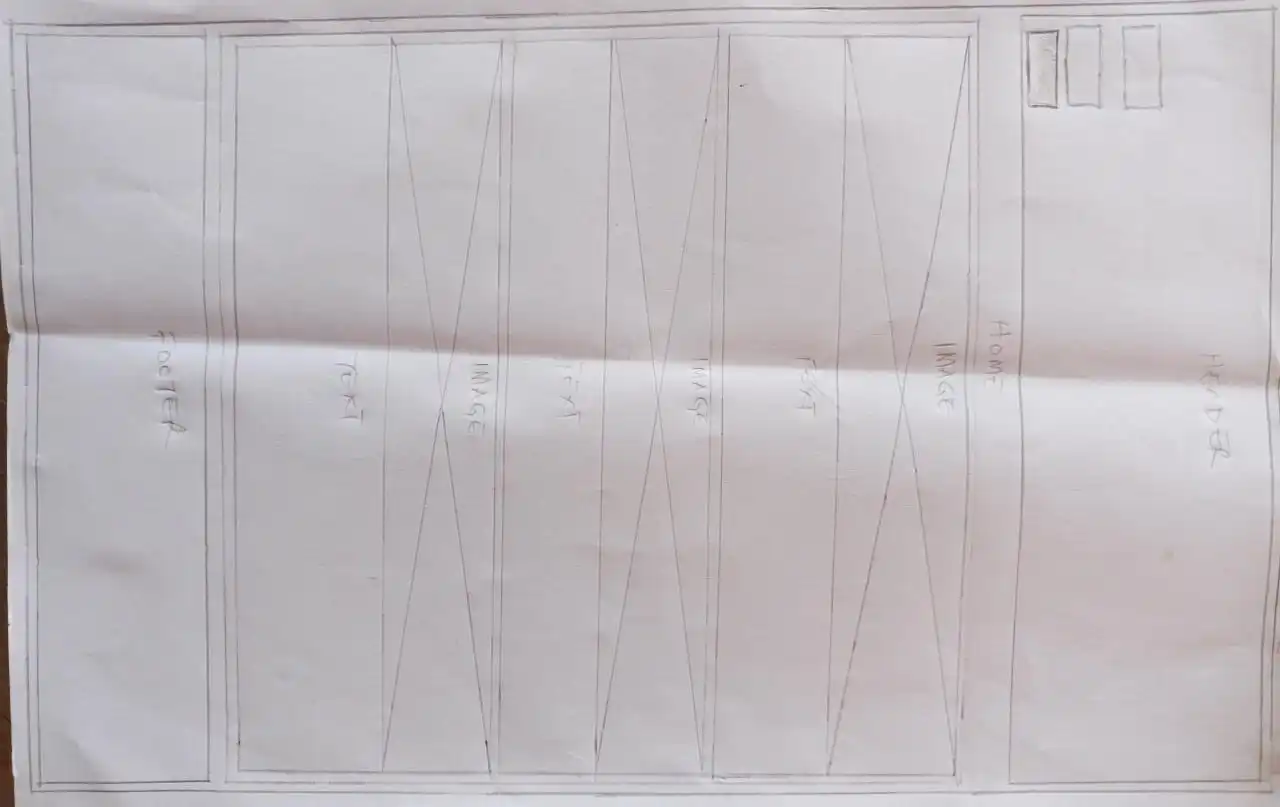 HEADER
HOME
IMAGE
TEXT
IMAGE
TEXT
IMAGE
TEXT
FOOTER